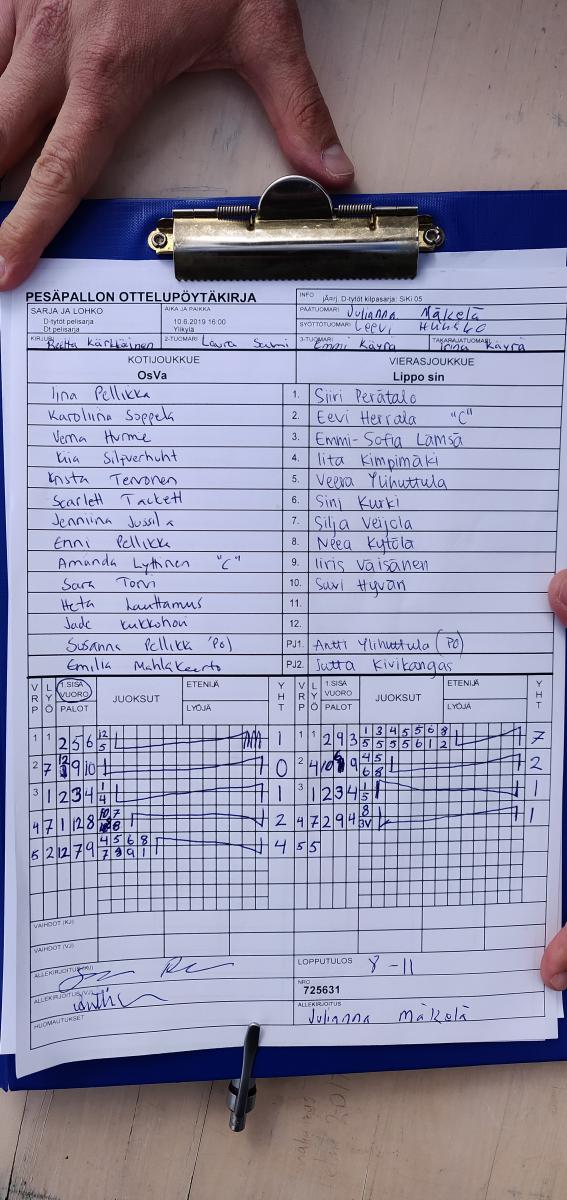 PESÄPALLON OTTELUPÖYTÄKIRJA
INFO jÄrrj. D-tytöt kilpasarja: SiKi 05
SARJA JA LOHKO
D-tytöt pelisarja
Dt pelisarja
AIKA JA PAIKKA
10.6.2019 16:00
Ylikylä
PÄÄTUOMARI Julianna Mäkelä
SYÖTTÖTUOMARI Leevi
KIRJURI Reetta Kärkkäinen
2-TUOMARI Laura Sumi
3-TUOMARI Emmi Käyrä
TAKARAJATUOMARI Irina Käyrä
KOTIJOUKKUE
OsVa
VIERASJOUKKUE
Lippo sin
Iina Pellikka 1. Siiri Perätalo
Karoliina Soppela 2. Eevi Herrala "C"
Verna Hurme 3. Emmi-Sofia Lämsä
Kiia Silfverhuht 4. Iita Kimpimäki
Krista Tervonen 5. Veera Ylihuttula
Scarlett Tackett 6. Sini Kurki
Jenniina Jussila 7. Silja Veijola
Enni Pellikka 8. Neea Kytölä
Amanda Lyttinen "C" 9. Iiris Väisänen
Sara Torvi 10. Suvi Hyvän
Heta Lauttamus 11.
Jade Kukkohovi 12.
Susanna Pellikka (PO) PJ1. Antti Ylihuttula (PO)
Emilia Mahlakaarto PJ2. Jutta Kivikangas
VRP LYÖ 1.SISÄ VUORO PALOT JUOKSUT ETENIJÄ LYÖJÄ YHT
VRP LYÖ 1.SISÄ VUORO PALOT JUOKSUT ETENIJÄ LYÖJÄ YHT
1 1 2 5 6 12 1 1 1 2 9 3 1 3 4 5 5 6 8 7
5 5 5 5 5 6 1 2
2 7 9 10 0 2 4 10 9 4 5 2
6 8
3 1 2 3 4 1 1 3 1 2 3 4 1 1
4 5
4 7 1 12 8 10 7 2 4 7 2 9 4 8 1
8 3V
5 2 12 7 9 4 5 6 8 4 5 5
7 9 9 1
VAIHDOT (KJ)
VAIHDOT (VJ)
ALLEKIRJOITUS (KJ)
LOPPUTULOS 8-11
ALLEKIRJOITUS (VJ)
NRO
725631
HUOMAUTUKSET
ALLEKIRJOITUS
Julianna Mäkelä